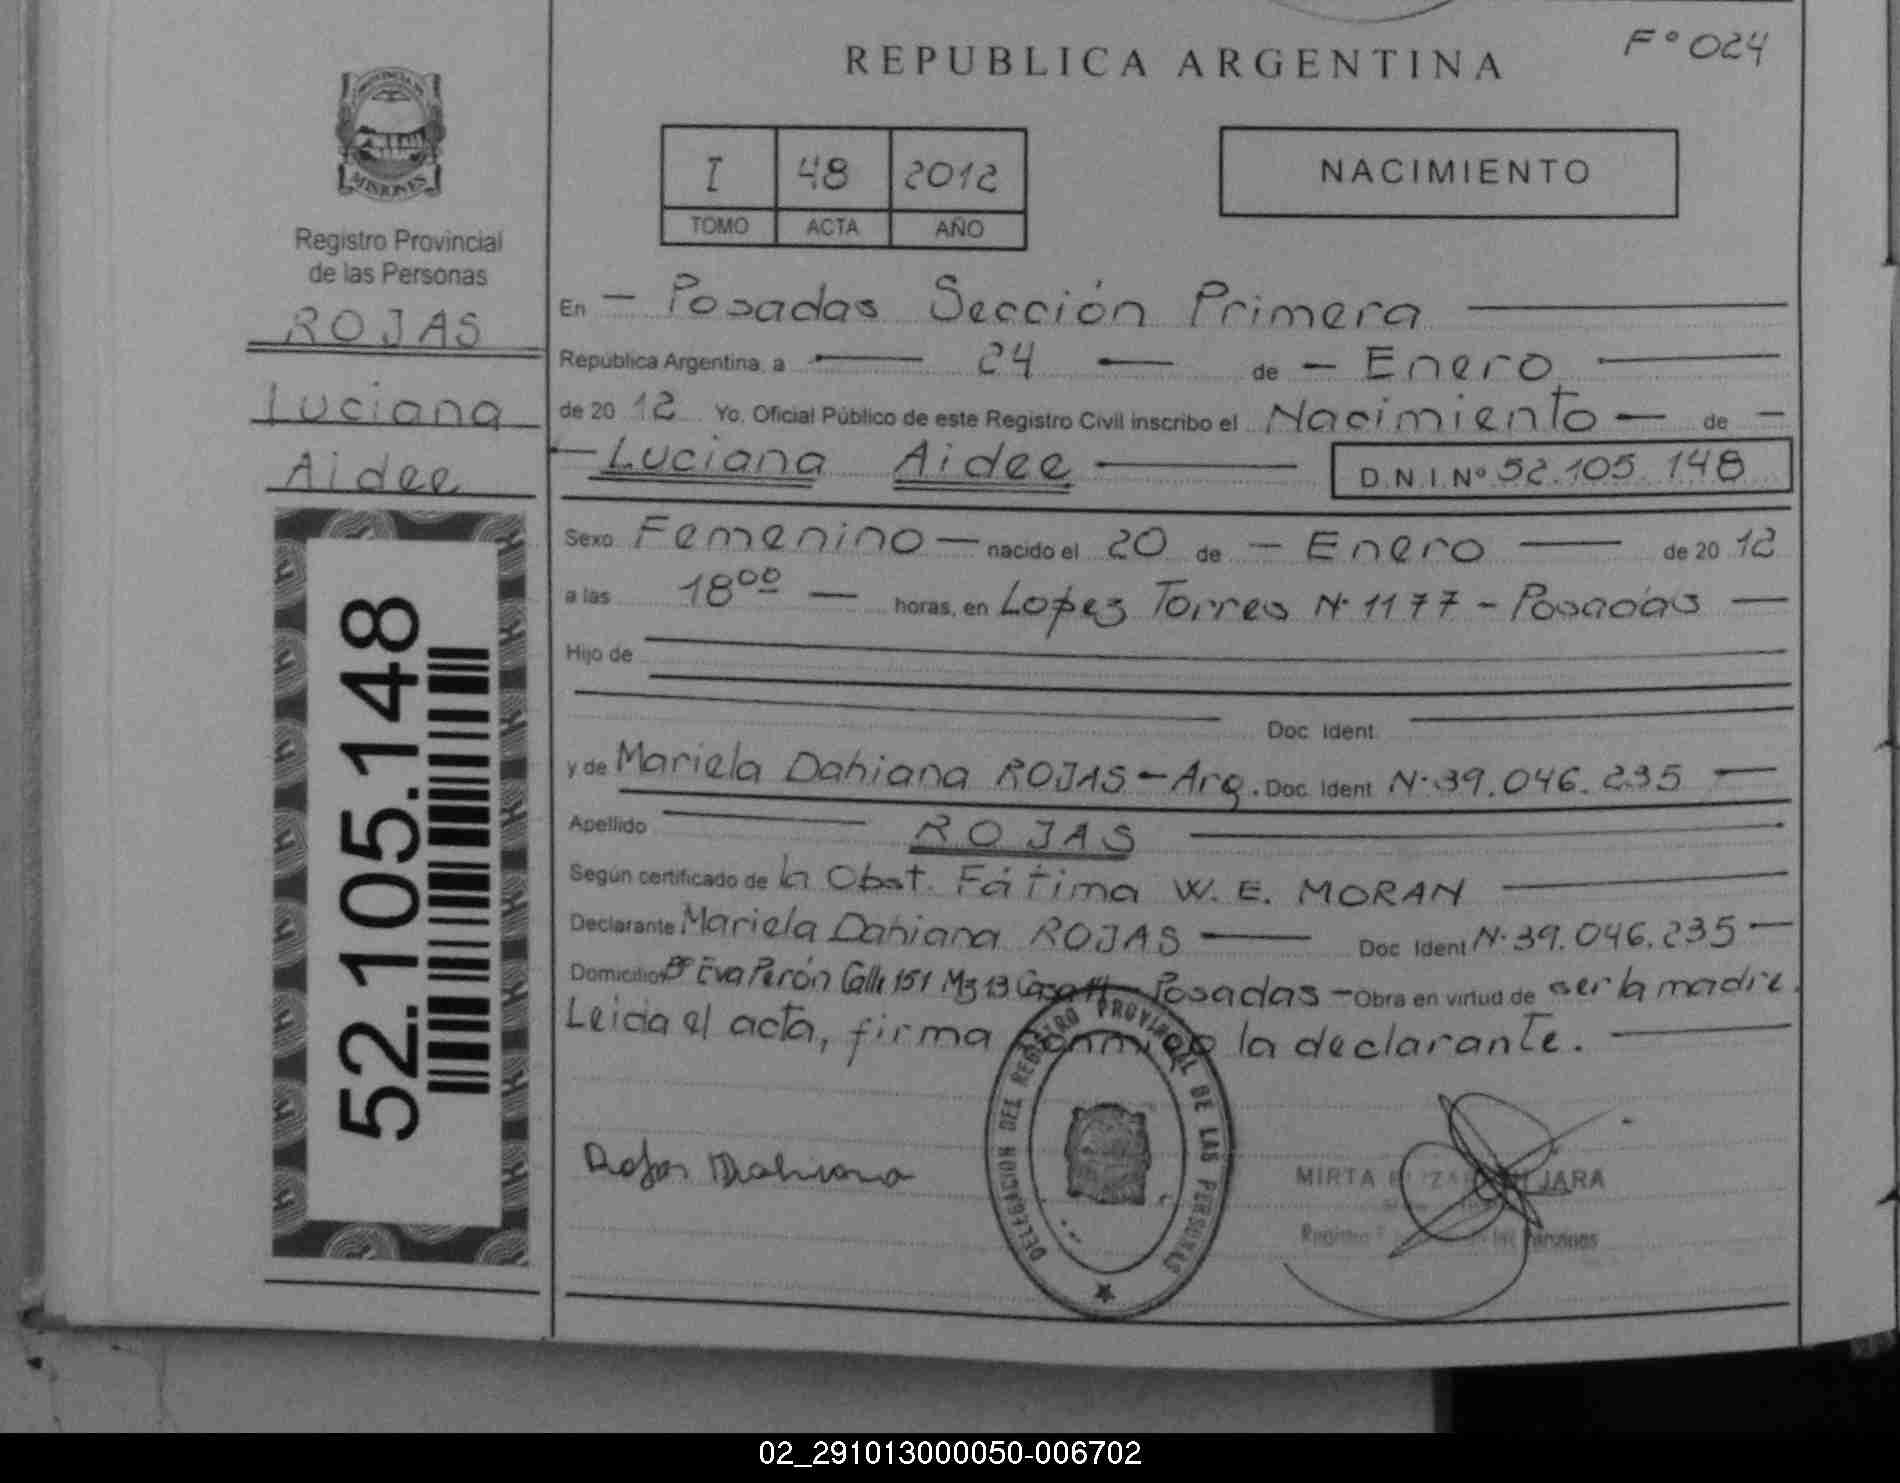 F° 024
REPUBLICA ARGENTINA
PROVINCIA DE
MISIONES
Registro Provincial
de las Personas
ROJAS
Luciana
Aidee
52.105.148
I 48 2012
TOMO ACTA AÑO
NACIMIENTO
En - Posadas Sección Primera
República Argentina, a 24 de - Enero
de 20 12 Yo, Oficial Público de este Registro Civil inscribo el Nacimiento - de -
Luciana Aidee D.N.I.Nº 52.105.148
Sexo Femenino - nacido el 20 de - Enero de 20 12
a las 18⁰⁰ - horas, en Lopez Torres N· 1177 - Posadas -
Hijo de
Doc. Ident.
y de Mariela Dahiana ROJAS - Arg. Doc. Ident. N· 39.046.235
Apellido ROJAS
Según certificado de la Obst. Fátima W. E. MORAN
Declarante Mariela Dahiana ROJAS Doc. Ident. N· 39.046.235
Domicilio Bº Eva Perón Calle 151 Mz 13 Casa - Posadas - Obra en virtud de ser la madre.
Leida el acta, firma conmigo la declarante.
DELEGACION DEL REGISTRO PROVINCIAL DE LAS PERSONAS
Rojas Dahiana
MIRTA JARA
Registro Personas
02_291013000050-006702